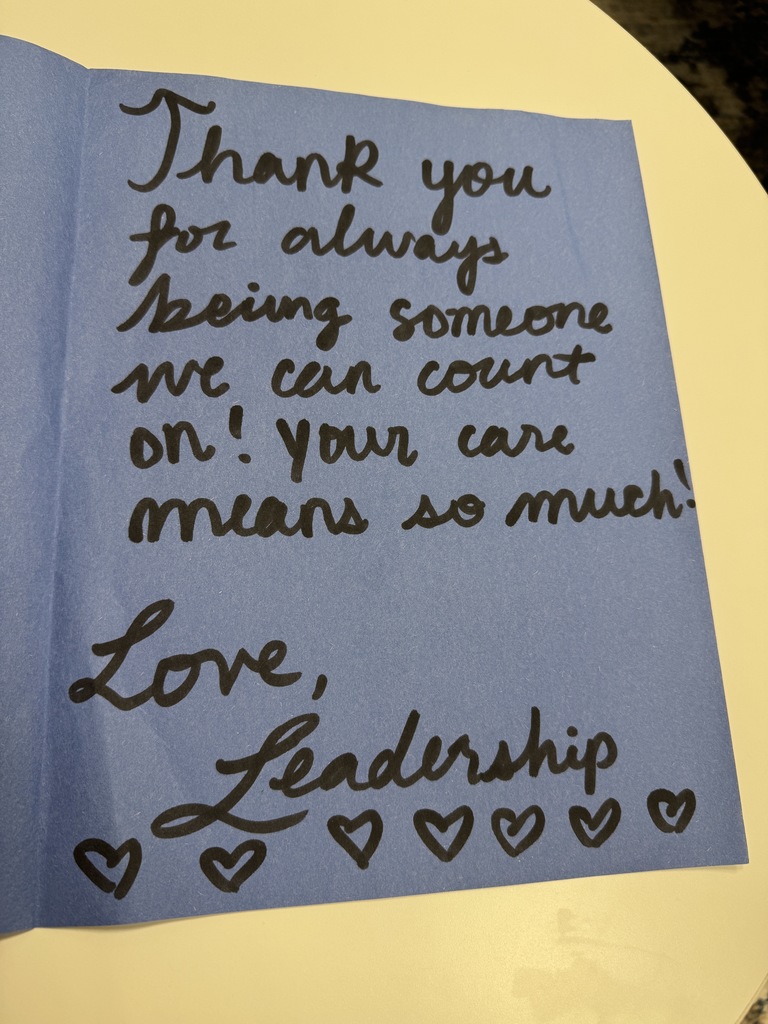 Thank you
for always
being someone
we can count
on! Your care
means so much!
Love,
Leadership